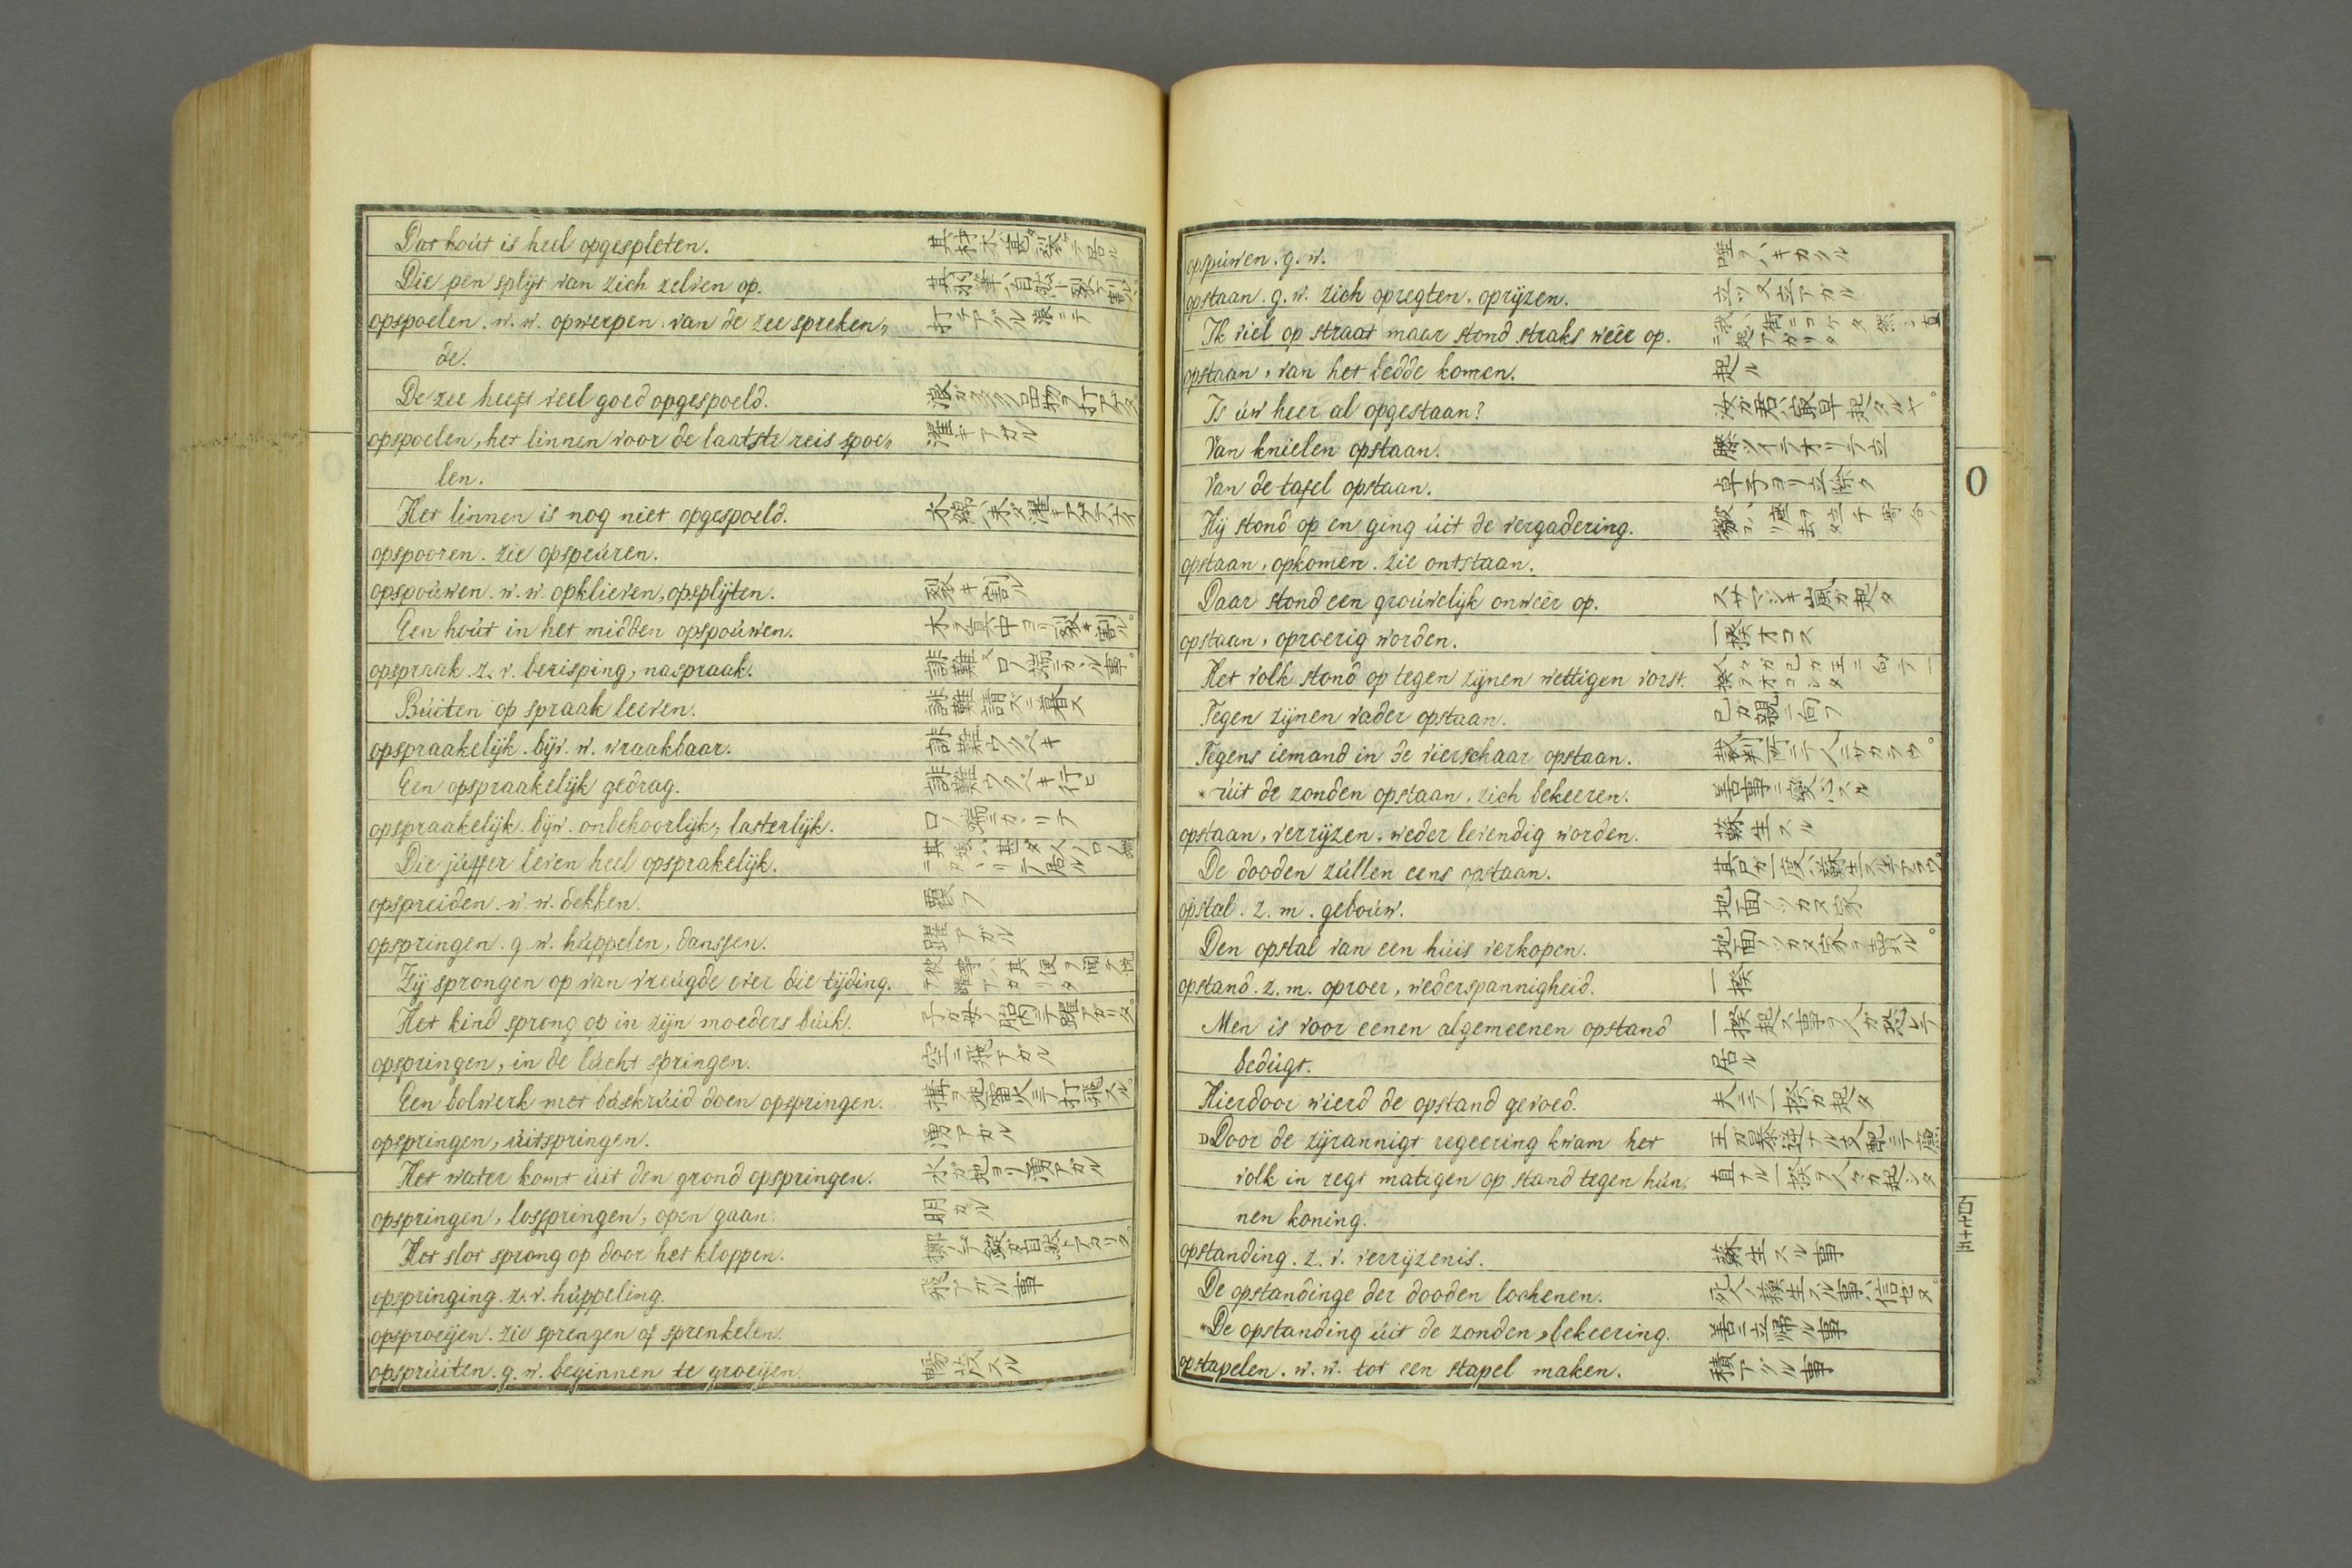 Dat hoút is heel opgespleten.
其材木ハ甚ダ裂テ居ル
Die pen splijt van zich zelven op.
其羽筆ハ自然ト裂ケ割ル。
opspoelen. w. w. opwerpen. van de zee spreken„
打テアグル 浪ニテ
de.
De zee heeft veel goed opgespoeld.
浪ガ多クノ品物ヲ打アゲタ。
opspoelen, het linnen voor de laatste reis spoe„
濯キアグル
len.
Het linnen is nog niet opgespoeld.
木綿ハ未ダ濯キアゲテナイ
opspooren. zie opspeúren.
opspoúwen. w. w. opklieven, opsplijten.
裂キ割ル
Een hoút in het midden opspoúwen.
木ヲ真中ヨリ裂キ割ル。
opspraak. z. v. berisping, naspraak.
誹難 又口ノ端ニカヽル事。
Búiten op spraak leeven.
誹難請ズニ暮ス
opspraakelijk. bijv. w. wraakbaar.
誹難ウクベキ
Een opspraakelijk gedrag.
誹難ウクベキ行ヒ
opspraakelijk. bijw. onbehoorlijk, lasterlijk.
口ノ端ニカヽリテ
Die júffer leven heel opsprakelijk.
opspreiden. w. w. dekken.
覆フ
opspringen. g. w. húppelen, danssen.
躍アガル
Zij sprongen op van vreúgde over die tijding.
Het kind sprong op in zijn moeders búik.
子ガ母ノ胎内ニテ躍アガリタ。
opspringen, in de lúcht springen.
空ニ飛アガル
Een bolwerk met búskrúid doen opspringen.
opspringen, úitspringen.
湧アガル
Het water komt úit den grond opspringen.
水ガ地ヨリ湧アガル
opspringen, losspringen, open gaan.
明カル
Het slot sprong op door het kloppen.
opspringing. z. v. húppeling.
飛アガル事
opsproeijen. zie sprengen of sprenkelen.
opsprúiten. g. w. beginnen te groeijen.
暢茂スル
opspúwen. g. w.
唾ヲハキカクル
opstaan. g. w. zich opregten. oprijzen.
立ツ 又立アガル
Ik viel op straat maar stond straks wêer op.
我ハ街ニコケタ然シ直ニ起アガリタ
opstaan, van het bedde komen.
起ル
Is úw heer al opgestaan?
汝ガ君ハ最早起タルヤ。
Van knielen opstaan.
膝ツイテオリテ立
Van de tafel opstaan.
卓子ヨリ立除ク
Hij stond op en ging úit de vergadering.
opstaan, opkomen. zie ontstaan.
Daar stond een groúwelijk onwêer op.
スサマジキ嵐ガ起タ
opstaan, oproerig worden.
一揆オコス
Het volk stond op tegen zijnen wettigen vorst.
人々ガ己ガ王ニ向テ一揆ヲオコシタ
Tegen zijnen vader opstaan.
己ガ親ニ向フ
Tegens iemand in de vierschaar opstaan.
裁判所ニテ人ニサカラウ。
*úit de zonden opstaan, zich bekeeren.
善事ニ変心スル
opstaan, verrijzen, weder levendig worden.
蘇生スル
De dooden zúllen eens opstaan.
opstal. z. m. geboúw.
地面ノツカヌ家
Den opstal van een húis verkopen.
地面ノツカヌ家ヲ賣ル。
opstand. z. m. oproer, wederspannigheid.
一揆
Men is voor eenen algemeenen opstand
一揆起ス事ヲ人ガ恐レテ
bedúgt.
居ル
Hierdoor wierd de opstand gevoed.
夫ニテ一揆ガ起タ
Door de zijrannigt regeering kwam het
王ガ暴逆ナル支配ニテ廉
volk in regt matigen op stand tegen hún„
直ナル一揆ヲ人々ガ起シタ
nen koning.
opstanding. z. v. verrijzenis.
蘇生スル事
De opstandinge der dooden lochenen.
死人ノ蘇生スル事ハ信ゼヌ。
*De opstanding úit de zonden, bekeering.
善ニ立帰ル事
opstapelen. w. w. tot een stapel maken.
積アグル事
O
百七十五